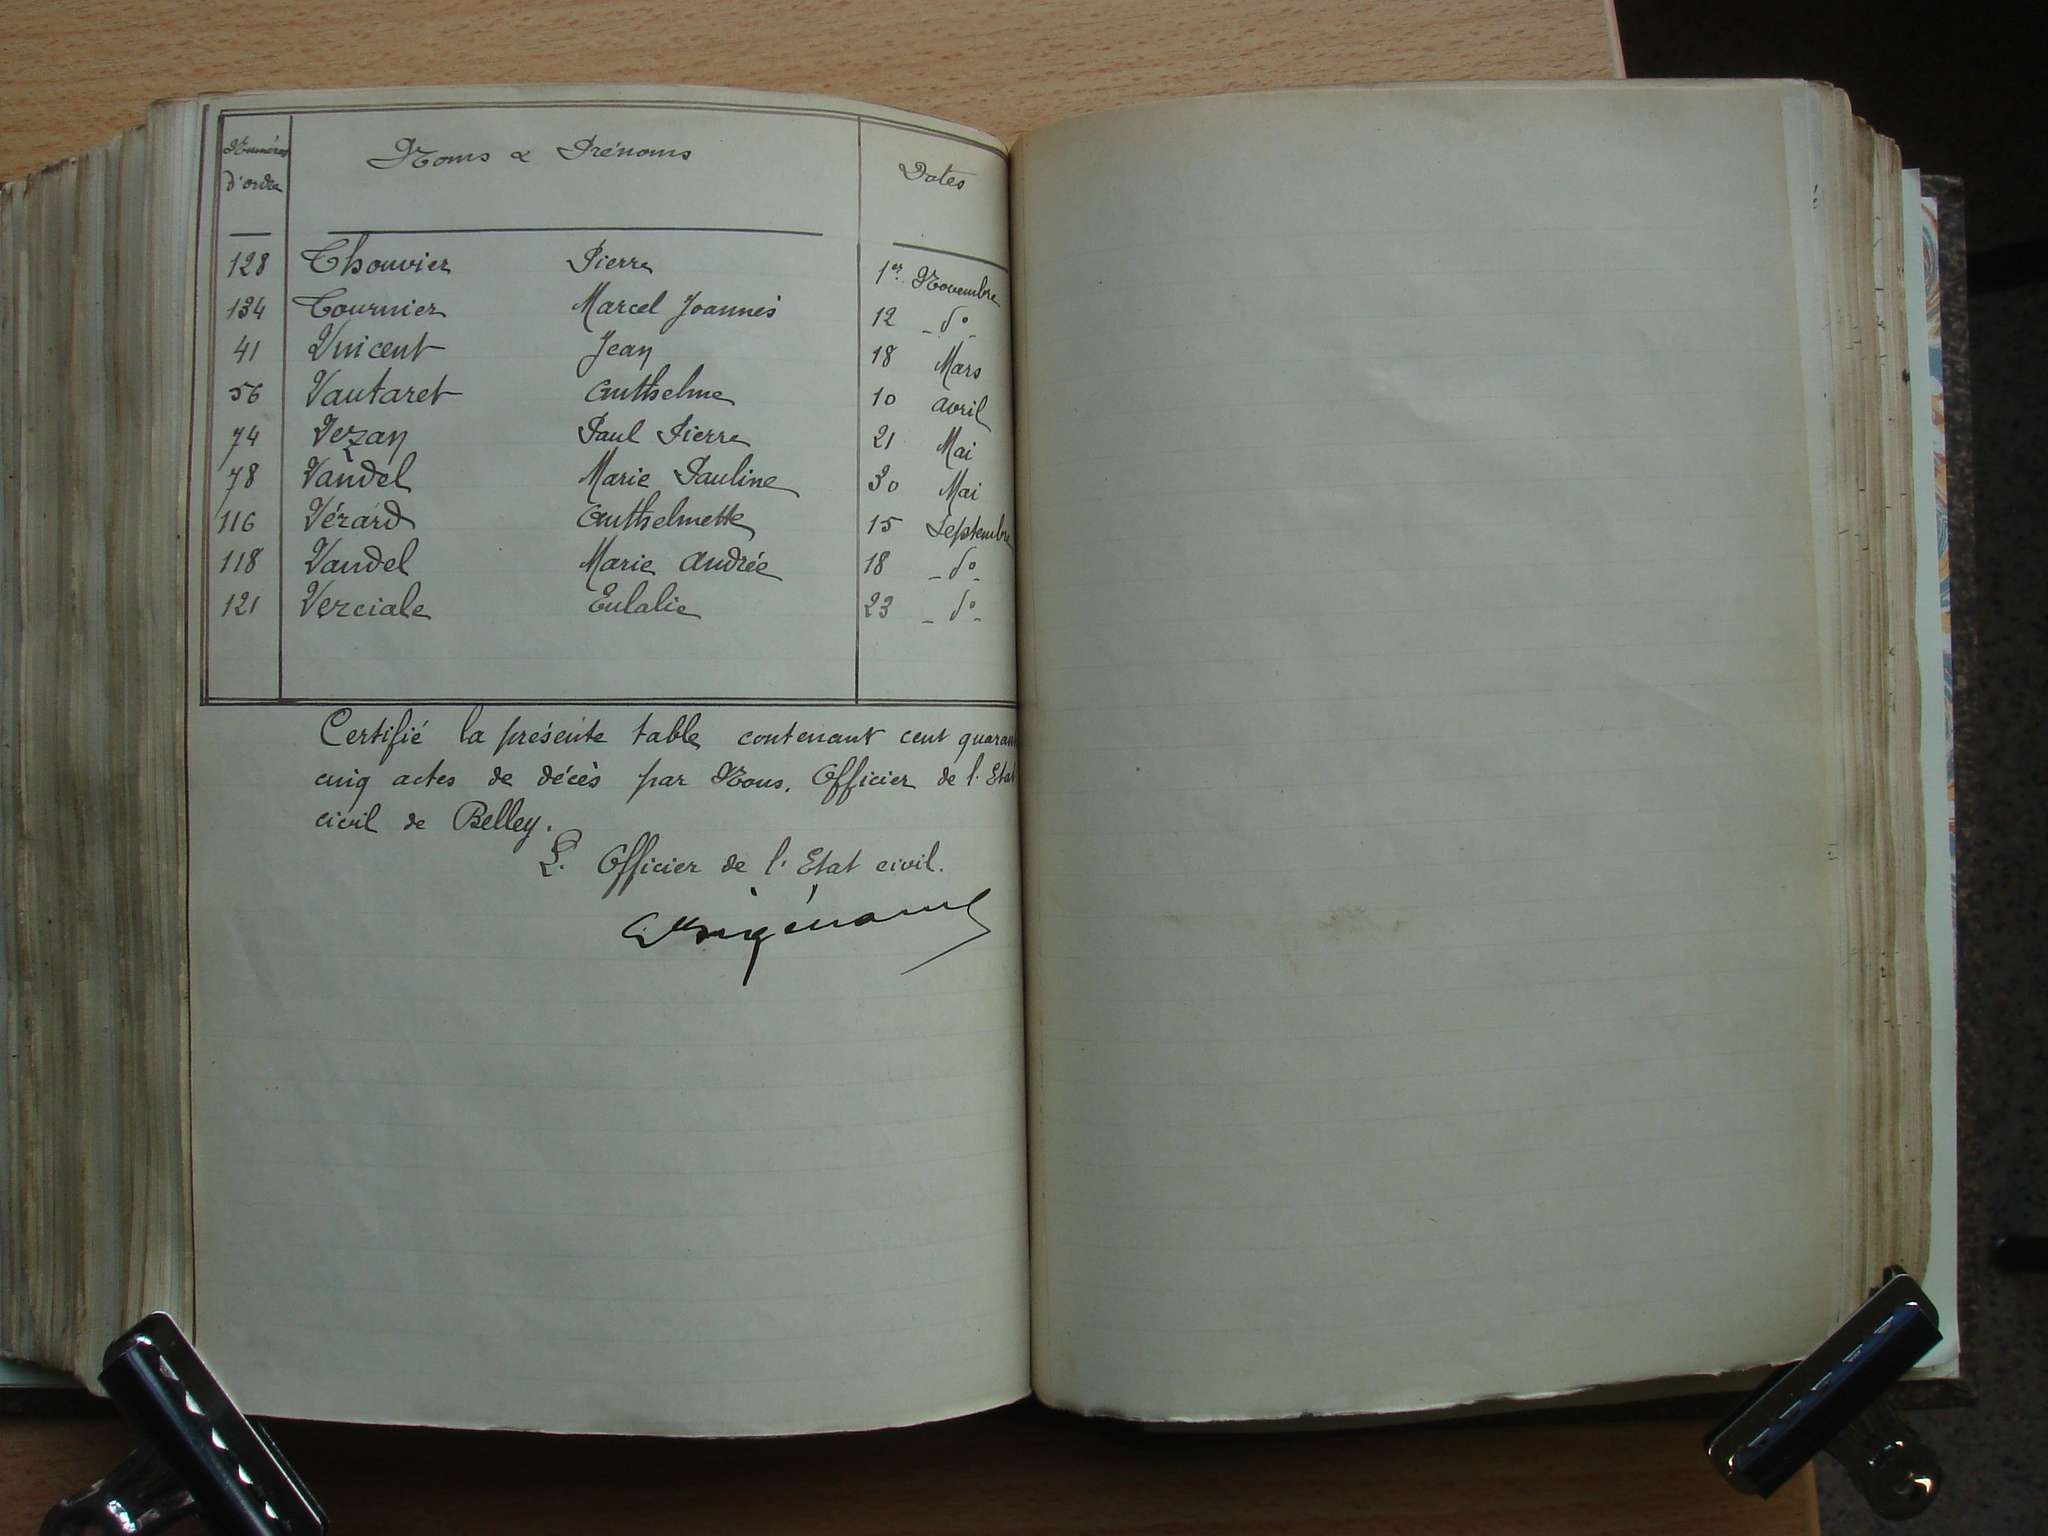 Numéros d'ordre	Noms & Prénoms	Dates
128	Thouvier	Pierre	1er Novembre
134	Tournier	Marcel Joannès	12 - do -
41	Vincent	Jean	18 Mars
56	Vautaret	Anthelme	10 avril
74	Vezan	Paul Pierre	21 Mai
78	Vandel	Marie Pauline	30 Mai
116	Vérard	Anthelmette	15 Septembre
118	Vandel	Marie Andrée	18 - do -
121	Verciale	Eulalie	23 - do -
Certifié la présente table contenant cent quaran
cinq actes de décès par Nous, Officier de l'Etat
civil de Belley.
L'Officier de l'Etat civil.